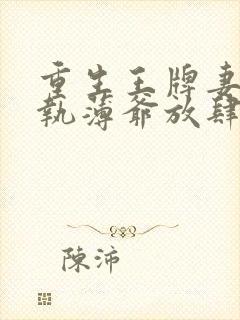 重生王牌妻
執薄爺放肆
陳沛